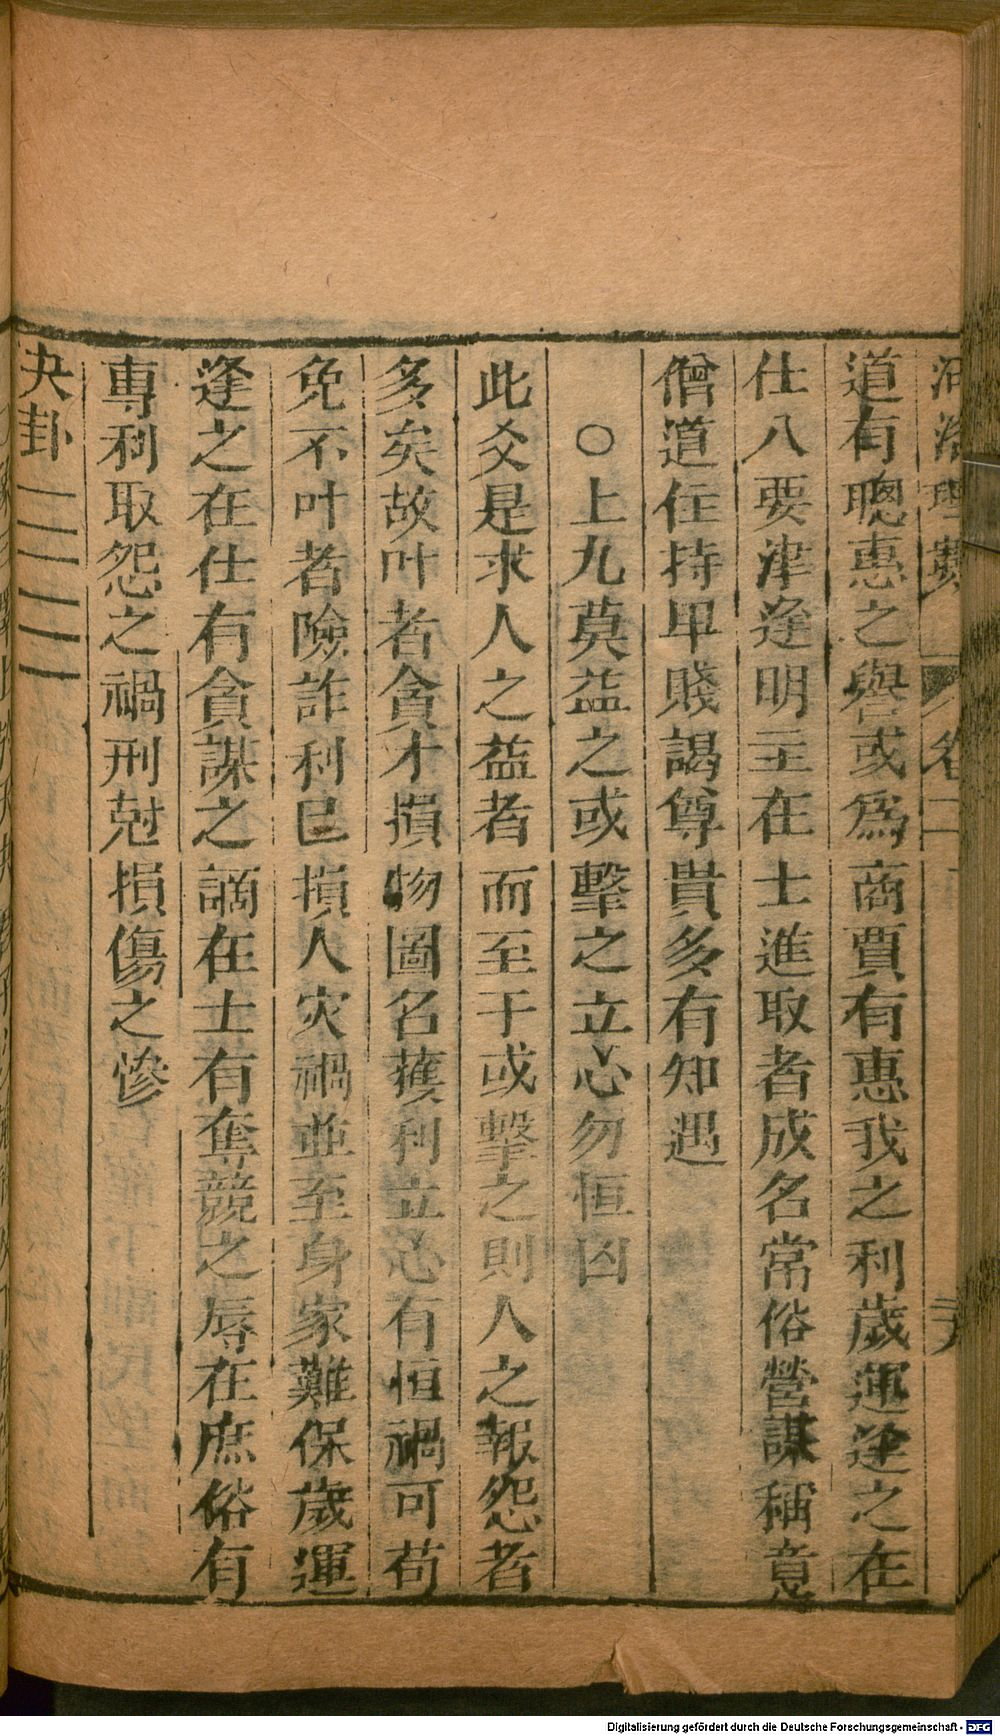 河洛理數 卷二
道有聰惠之譽或為商賈有惠我之利歲運逢之在
仕八要津逢明主在士進取者成名常俗營謀稱意
僧道住持卑賤謁尊貴多有知遇
○上九莫益之或擊之立心勿恒凶
此爻是求人之益者而至于或擊之則人之報怨者
多矣故叶者貪才損物圖名獲利立心有恒禍可苟
免不叶者險詐利己損人灾禍並至身家難保歲運
逢之在仕有貪謀之謫在士有奪競之辱在庶俗有
專利取怨之禍刑尅損傷之慘
夬卦
Digitalisierung gefördert durch die Deutsche Forschungsgemeinschaft - DFG